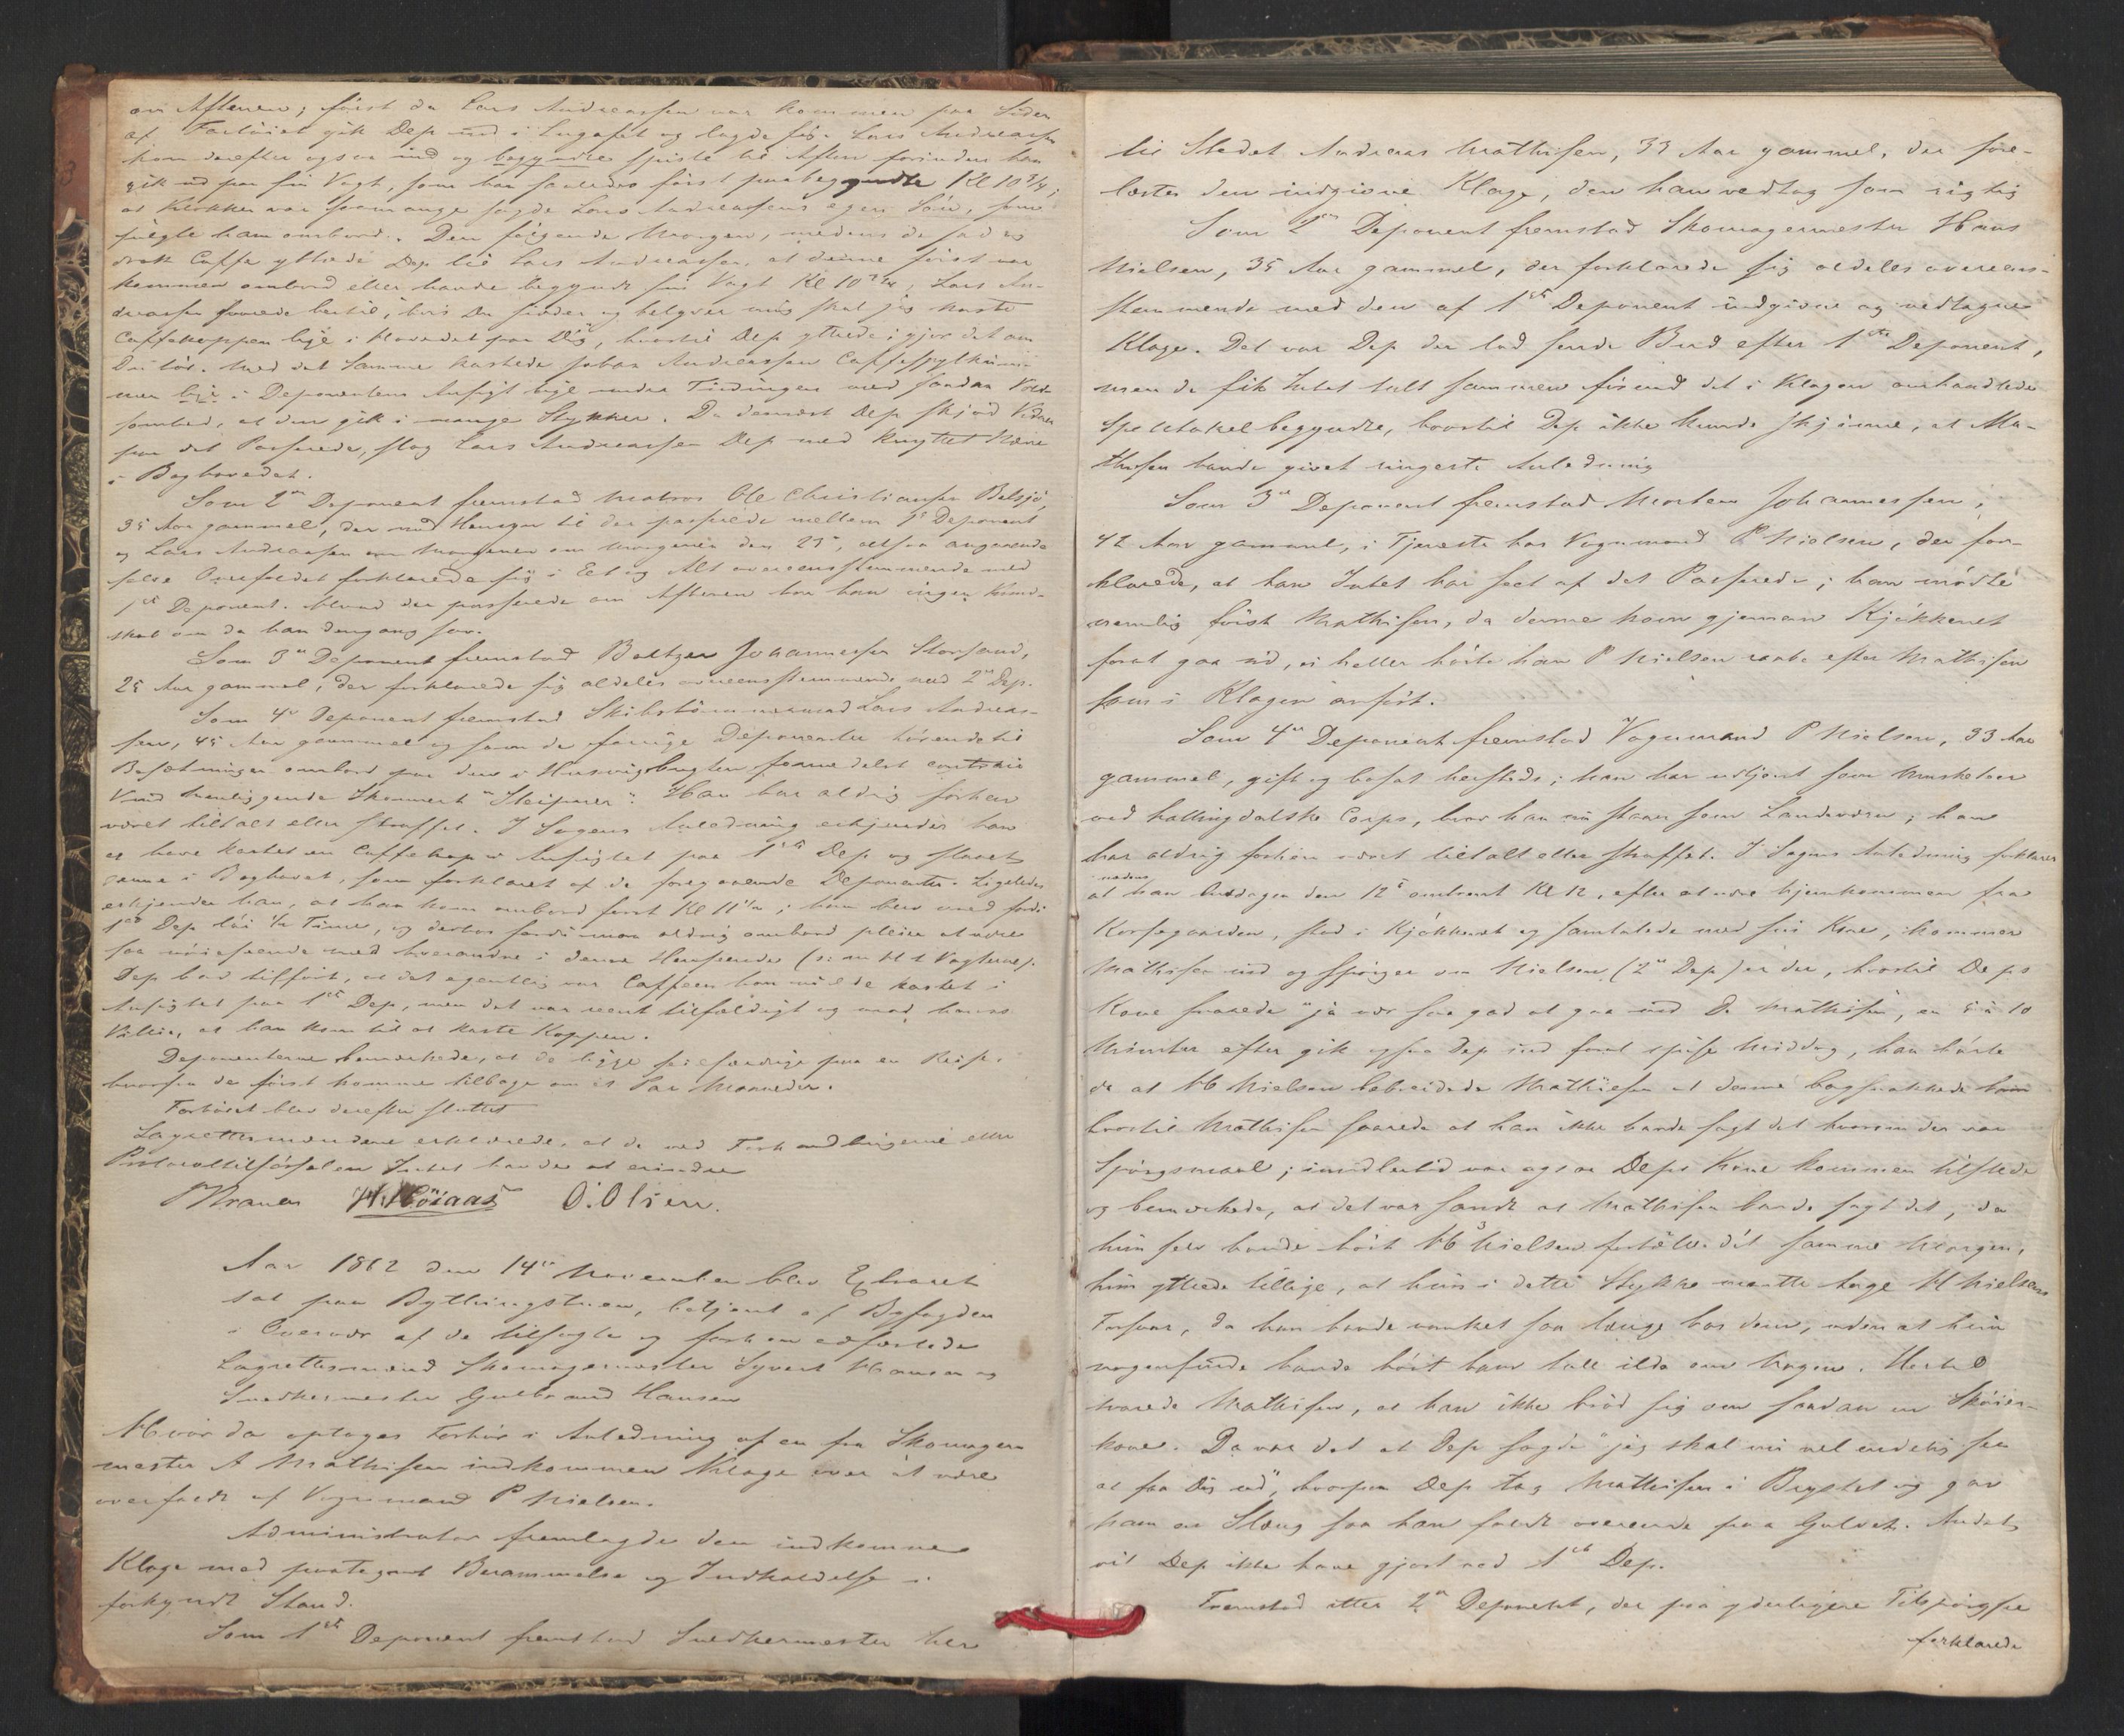 om Aftenen; först da Lars Andreassen var kommen paa Siden
af Fartöiet gik Dep ind i Lugafet og lagde sig. Lars Andreassen
kom derefter ogsaa ind og begyndte spiste til Aften forinden han
gik ud paa sin Vagt, som han saaledes först paabegyndte Kl 10 3/4;
at Klokken var saamange sagde Lars Andreassens egen Sön, som
fulgte ham ombord. Den fölgende Morgen, medens de sad og
drak Caffe yttrede Dep til Lars Andreassen, at denne först var
kommen ombord eller havde begyndt sin Vagt Kl 10 3/4, Lars An-
dreassen svarede hertil, hvis Du sidder og belyver mig skal jeg kaste
Caffekoppen lige i Hovedet paa Dig, hvortil Dep yttrede: gjör det om
Du tör. Med det Samme kastede Lars Andreassen
men lige i Deponentens Ansigt lige under Tindingen med saadan Vold-
somhed, at den gik i mange Stykker. Da dernæst Dep skjöd Vidner
paa det Passerede, slog Lars Andreassen Dep med knyttet Næve
i Baghovedet.
Som 2den Deponent fremstod Matros Ole Christiansen Belsjö,
35 Aar gammel, der med Hensyn til det passerede mellem 1ste Deponent
og Lars Andreassen om Morgenen om Morgenen den 23de, altsaa angaaende
selve Overfaldet forklarede sig i Et og Alt overeensstemmende med
1ste Deponent. Hvad der passerede om Aftenen har han ingen Kund-
skab om da han dengang sov.
Som 3die Deponent fremstod Baltzer Johannessen Storsand,
25 Aar gammel, der forklarede sig aldeles overeensstemmende med 2den Dep.
Som 4de Deponent fremstod Skibstömmermand Lars Andreas-
sen, 45 Aar gammel og som de forrige Deponenter hörende til
Besætningen ombord paa den i Husvigbugten formedelst contrair
Vind henliggende Skonnert "Sleipner". Han har aldrig forhen
været tiltalt eller straffet. I Sagens Anledning erkjender han
at have kastet en Caffekop i Ansigtet paa 1ste Dep og slaaet
denne i Baghovet, som forklaret af de foregaaende Deponenter. Ligeledes
erkjender han, at han kom ombord först Kl 11 1/2; han blev vred fordi
1ste Dep löi 1/2 Time, og derhos fordi man aldrig ombord pleier at være
saa nöieseende med hverandre i denne Henseende (i: m H t Vagterne).
Dep bad tilfört, at det egentlig var Caffeen han vilde kastet i
Ansigtet paa 1ste Dep, men det var reent tilfældigt og mod hans
Villie, at han kom til at kaste Koppen.
Deponenterne bemærkede, at de ligge seilfærdige paa en Reise,
hvorfra de först komme tilbage om et Par Maaneder.
Forhöret blev derefter sluttet
Lagrettesmændene erklærede, at de ved Forhandlingerne eller
Protocoltilförselen Intet havde at erindre
H. Höiaas O. Olsen.
Aar 1862 den 14de November blev Extraret
sat paa Bythingstuen, betjent af Byfogden
i Overvær af de tilsagte og forhen edfæstede
Lagrettesmænd Skomagermester Syvert Hansen og
Snedkermester Gulbrand Hansen
Hvor da optages Forhör i Anledning af en fra Skomager-
mester A Mathisen indkommen Klage over at være
overfaldt af Vognmand P Nielsen.
Administrator fremlagde den indkomne
Klage med paategnet Berammelse og Indkaldelse i
forkyndt Stand.
Som 1ste Deponent fremstod Snedkermester her
til Stedet Andreas Mathisen, 33 Aar gammel, der fore-
læstes den indgivne Klage, den han vedtog som rigtig
Som 2den Deponent fremstod Skomagermester Hans
Nielsen, 35 Aar gammel, der forklarede sig aldeles overeens-
stemmende med den af 1ste Deponent indgivne og vedtagne
Klage. Det var Dep der lod sende Bud efter 1ste Deponent,
men de fik Intet talt sammen förend det i Klagen omhandlede
Spektakel begyndte, hvortil Dep ikke kunde skjönne, at Ma-
thisen havde givet ringeste Anledning
Som 3die Deponent fremstod Morten Johannessen,
42 Aar gammel, i Tjeneste hos Vognmand P Nielsen, der for-
klarede, at han Intet har seet af det Passerede; han mödte
nemlig först Mathisen, da denne kom gjennem Kjökkenet
forat gaa ud, ei heller hörte han P Nielsen raabe efter Mathisen
som i Klagen anfört.
Som 4de Deponent fremstod Vognmand P Nielsen, 33 Aar
gammel, gift og bosat hersteds; han har udtjent som Musketeer
ved hallingdalske Corps, hvor han nu staaer som Landeværn; han
har aldrig forhen været tiltalt eller straffet. I Sagens Anledning forklarer
medens
at han Onsdagen den 12te omtrent Kl 12, efter at være hjemkommen fra
Korsegaarden, stod i Kjökkenet og samtalede med sin Kone, kommer
Mathisen ind og spörger om Nielsen (2den Dep) er der, hvortil Deps
Kone svarede "ja vær saa god at gaa ind De Mathisen, en 5 à 10
Minuter efter gik ogsaa Dep ind forat spise Middag, han hörte
da at H Nielsen bebreidede Mathisen at denne bagsnakkede ham
hvortil Mathisen svarede at han ikke havde sagt det hvorom der var
Spörgsmaal; imidlertid var ogsaa Deps Kone kommen tilstede
og bemærkede, at det var sandt at Mathisen havde sagt det, da
hun selv havde hört H Nielsen fortælle det samme Morgen,
hun yttrede tillige, at hun i dette Stykke maatte tage H Nielsens
Forsvar, da han havde vanket saa længe hos dem, uden at hun
nogensinde havde hört ham tale ilde om Nogen. Hertil
svarede Mathisen, at han ikke bröd sig om saadan en Sköier-
kone. Da var det at Dep sagde "jeg skal nu vel endelig see
at faa Dig ud", hvorpaa Dep tog Mathisen i Brystet og gav
ham en Slæng saa han faldt overende paa Gulvet. Andet
vil Dep ikke have gjort ved 1ste Dep.
Fremstod atter 2den Deponent, der paa yderligere Tilspörgsel
forklarede